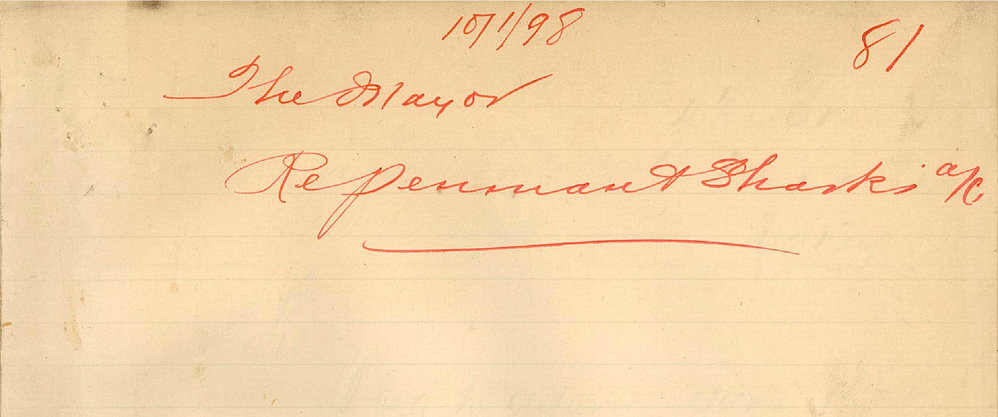 10/1/98
81
The Mayor
Re Penman & Sharks a/c